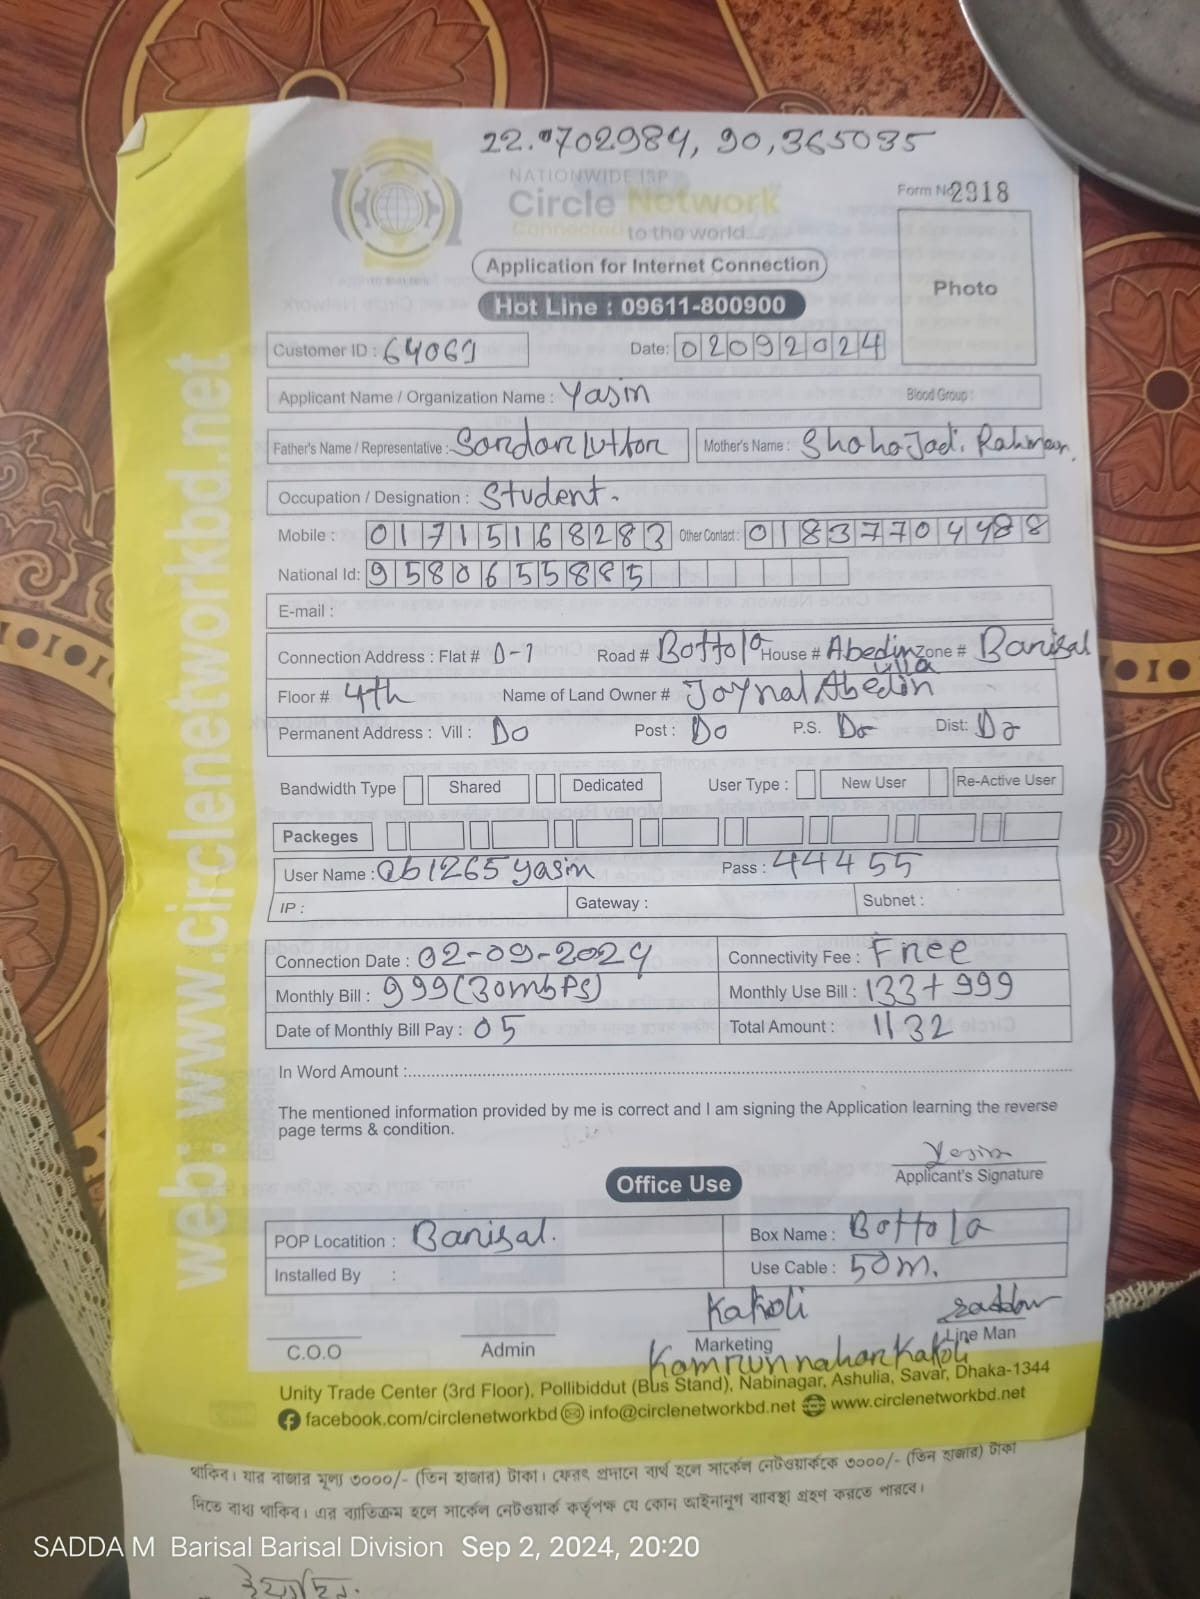 22.0702984, 90,365035
NATIONWIDE ISP
Circle Network
Connected to the world....
Form No 2918
Application for Internet Connection
Photo
Hot Line : 09611-800900
Customer ID : 64061 Date: 02092024
Applicant Name / Organization Name : Yasin Blood Group :
Father's Name / Representative : Sordar Lutfor Mother's Name : Shahajadi. Rahman.
Occupation / Designation : Student.
Mobile : 01715168283 Other Contact : 01837704488
National Id: 9580655885
E-mail :
Connection Address : Flat # D-1 Road # Bottola House # Abedin villa Zone # Barisal
Floor # 4th Name of Land Owner # Joynal Abedin
Permanent Address : Vill : Do Post : Do P.S. Do Dist: Do
Bandwidth Type Shared Dedicated User Type : New User Re-Active User
Packeges
User Name : ab1265yasin Pass : 44455
IP : Gateway : Subnet :
Connection Date : 02-09-2024 Connectivity Fee : Free
Monthly Bill : 999(30mbPS) Monthly Use Bill : 133+999
Date of Monthly Bill Pay : 05 Total Amount : 1132
In Word Amount :
The mentioned information provided by me is correct and I am signing the Application learning the reverse
page terms & condition.
Yasin
Applicant's Signature
Office Use
POP Locatition : Barisal. Box Name : Bottola
Installed By : Use Cable : 50m.
Kakoli Saddam
C.O.O Admin Marketing Line Man
Kamrunnahar Kakoli
Unity Trade Center (3rd Floor), Pollibiddut (Bus Stand), Nabinagar, Ashulia, Savar, Dhaka-1344
facebook.com/circlenetworkbd info@circlenetworkbd.net www.circlenetworkbd.net
web: www.circlenetworkbd.net
থাকিব। যার বাজার মূল্য ৩০০০/- (তিন হাজার) টাকা। ফেরৎ প্রদানে ব্যর্থ হলে সার্কেল নেটওয়ার্ককে ৩০০০/- (তিন হাজার) টাকা
দিতে বাধ্য থাকিব। এর ব্যতিক্রম হলে সার্কেল নেটওয়ার্ক কর্তৃপক্ষ যে কোন আইনানুগ ব্যবস্থা গ্রহণ করতে পারবে।
SADDA M Barisal Barisal Division Sep 2, 2024, 20:20
ইয়াছিন.